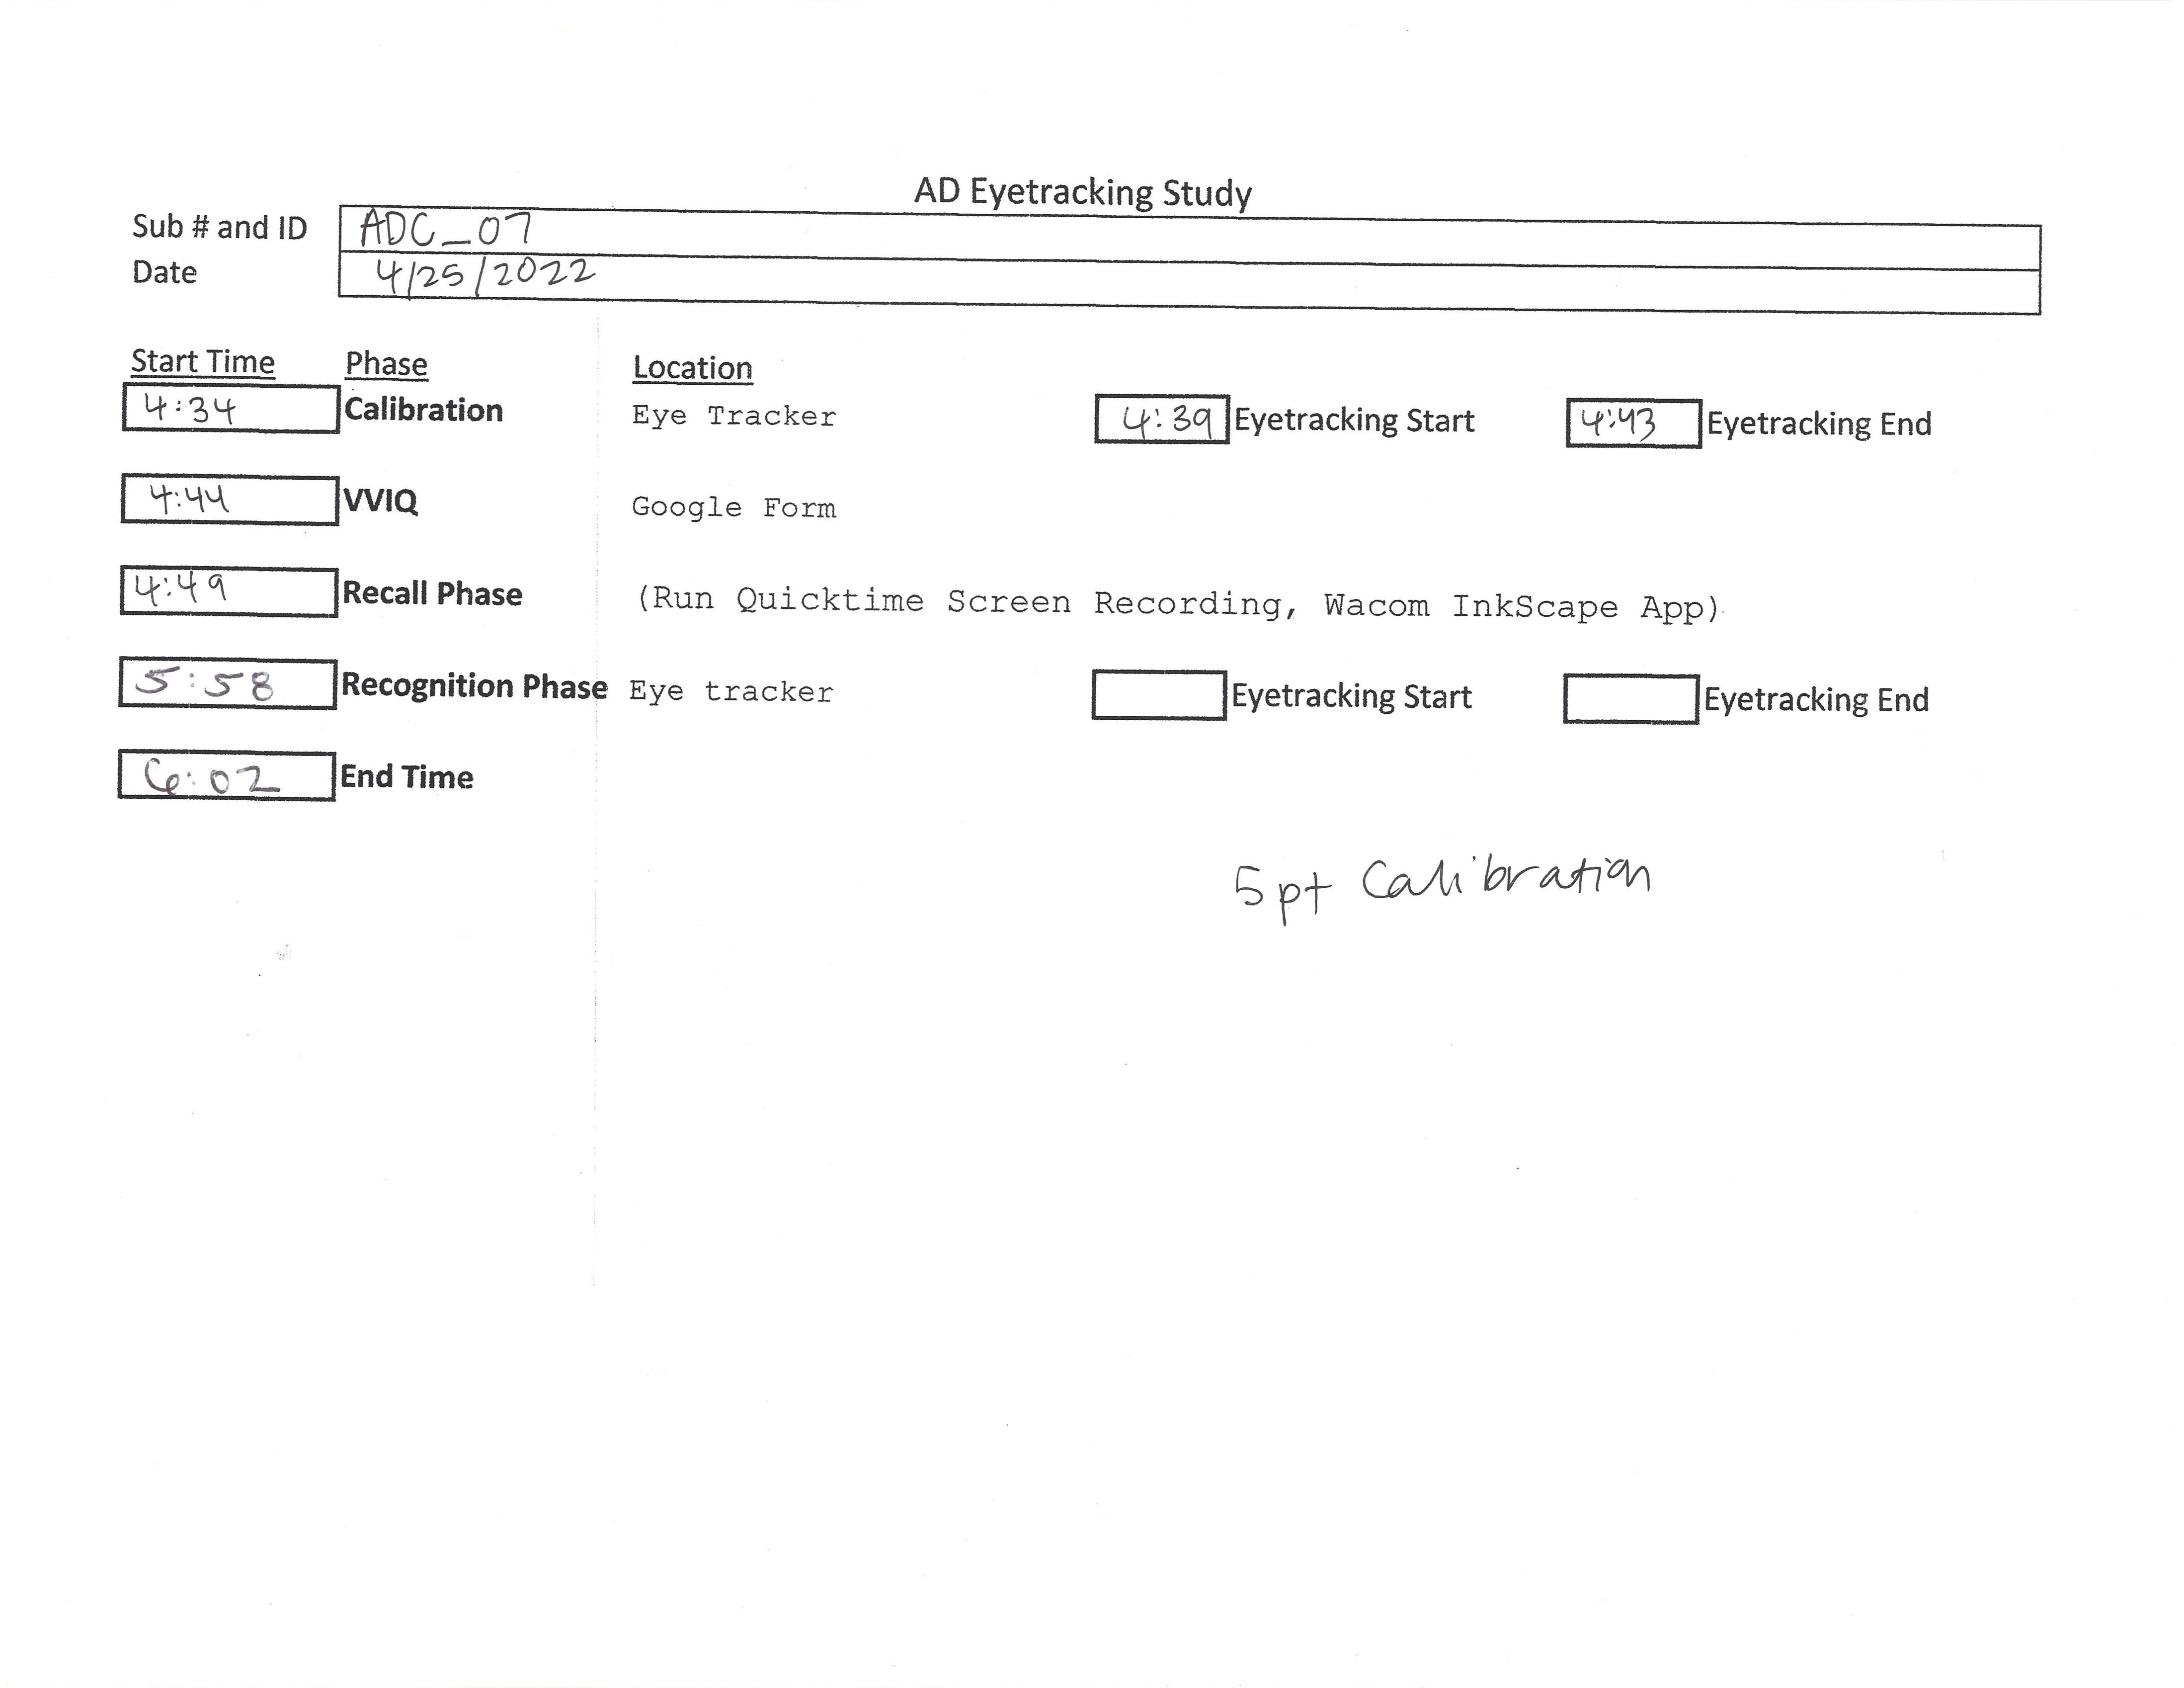 AD Eyetracking Study
Sub # and ID ADC_07
Date 4/25/2022
Start Time Phase Location
4:34 Calibration Eye Tracker 4:39 Eyetracking Start 4:43 Eyetracking End
4:44 VVIQ Google Form
4:49 Recall Phase (Run Quicktime Screen Recording, Wacom InkScape App)
5:58 Recognition Phase Eye tracker Eyetracking Start Eyetracking End
6:02 End Time
5pt Calibration